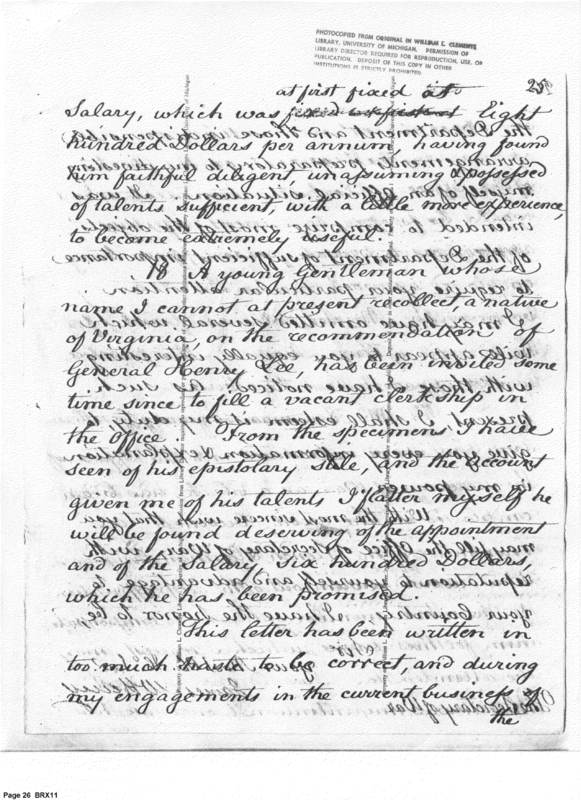 PHOTOCOPIED FROM ORIGINAL IN WILLIAM L. CLEMENTS
LIBRARY, UNIVERSITY OF MICHIGAN. PERMISSION OF
LIBRARY DIRECTOR REQUIRED FOR REPRODUCTION, USE, OR
PUBLICATION. DEPOSIT OF THIS COPY IN OTHER
INSTITUTIONS IS STRICTLY PROHIBITED
25
at first fixed at
Salary, which was fixed at first at Eight
hundred Dollars per annum, having found
him faithful diligent unassuming & possessed
of talents sufficient, with a little more experience,
to become extremely useful.
18 A young Gentleman whose
name I cannot at present recollect, a native
of Virginia, on the recommendation of
General Henry Lee, has been invited some
time since to fill a vacant clerkship in
the office. From the specimens I have
seen of his epistolary stile, and the account
given me of his talents I flatter myself he
will be found deserving of the appointment
and of the Salary, six hundred Dollars,
which he has been promised.
This letter has been written in
too much haste to be correct, and during
my engagements in the current business of
the
Page 26 BRX11